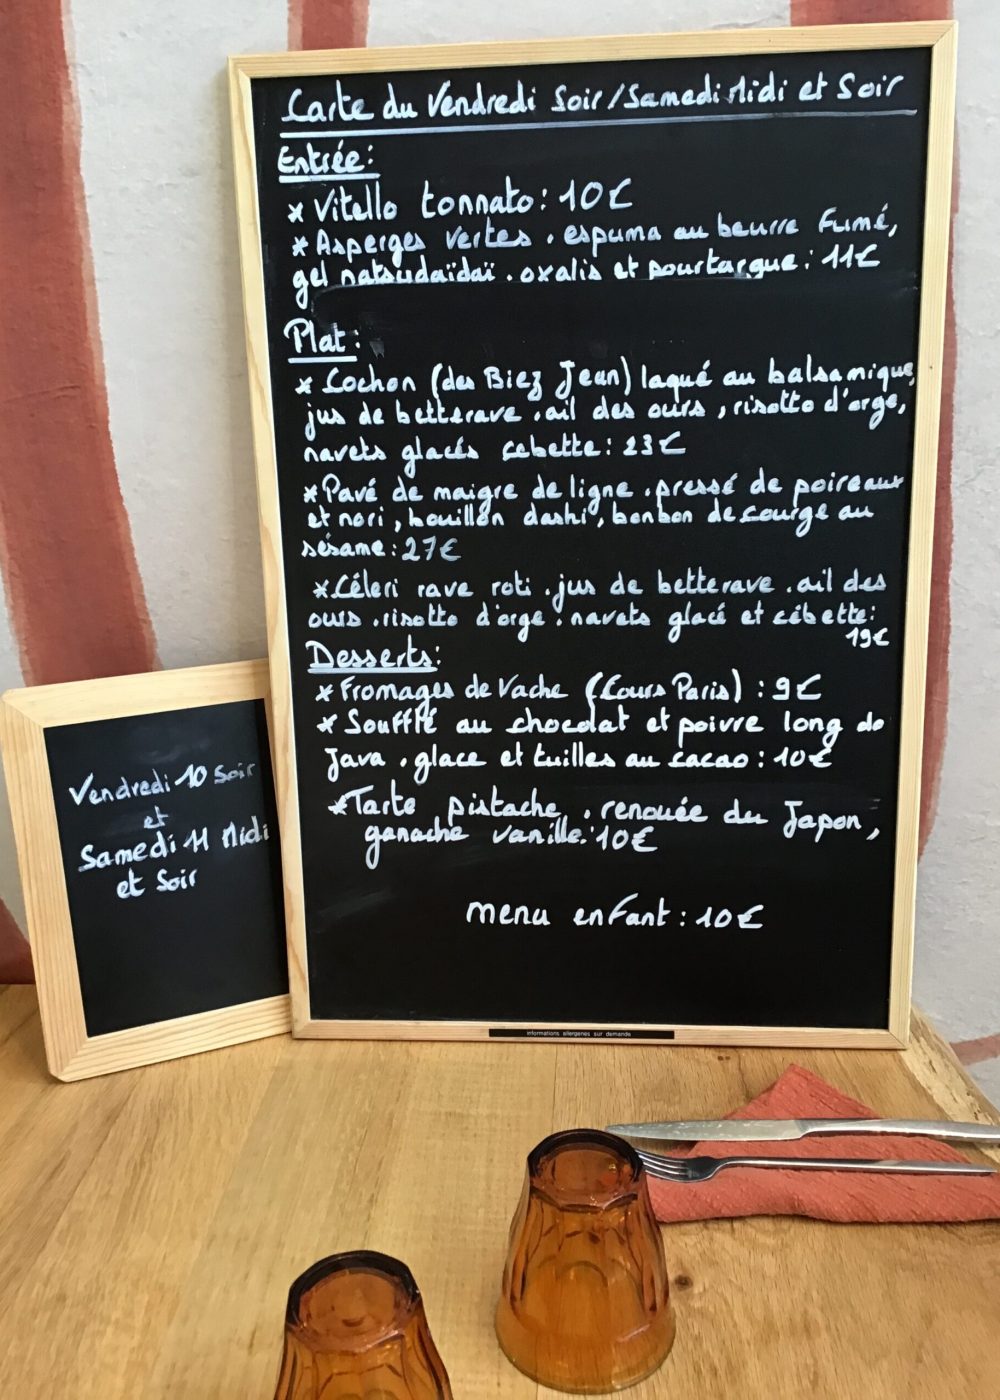 Carte du Vendredi Soir/Samedi Midi et Soir
Entrée:
* Vitello tonnato: 10€
* Asperges vertes . espuma au beurre fumé,
gel natsudaïdaï . oxalis et poutargue: 11€
Plat:
* Cochon (des Biez Jean) laqué au balsamique,
jus de betterave . ail des ours , risotto d'orge,
navets glacés cebette: 23€
* Pavé de maigre de ligne . pressé de poireaux
et nori , bouillon dashi , bonbon de courge au
sésame: 27€
* Céleri rave roti . jus de betterave . ail des
ours . risotto d'orge . navets glacé et cébette:
19€
Desserts:
* Fromages de Vache (Cours Paris) : 9€
* Soufflé au chocolat et poivre long de
Java . glace et tuilles au cacao : 10€
* Tarte pistache . renouée du Japon,
ganache vanille: 10€
menu enfant : 10€
informations allergenes sur demande
Vendredi 10 Soir
et
Samedi 11 Midi
et Soir